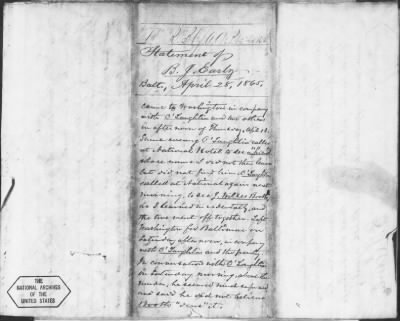 Statement of
B. J. Early
Balt, April 25, 1865.
came to Washington in company
with O'Laughlin and two others
in afternoon of Thursday, Apl 13.
Same evening O'Laughlin called
at National Hotel to see a friend
whose name I did not then learn
but did not find him. O'Laughlin
called at National again next
morning, to see J. Wilkes Booth,
as I learned incidentally, and
the two went off together. Left
Washington for Baltimore on
Saturday afternoon, in company
with O'Laughlin and the party.
In conversation with O'Laughlin
on Saturday morning, about the
murder, he seemed much
and said he did not believe
Booth "done" it.
THE
NATIONAL ARCHIVES
OF THE
UNITED STATES